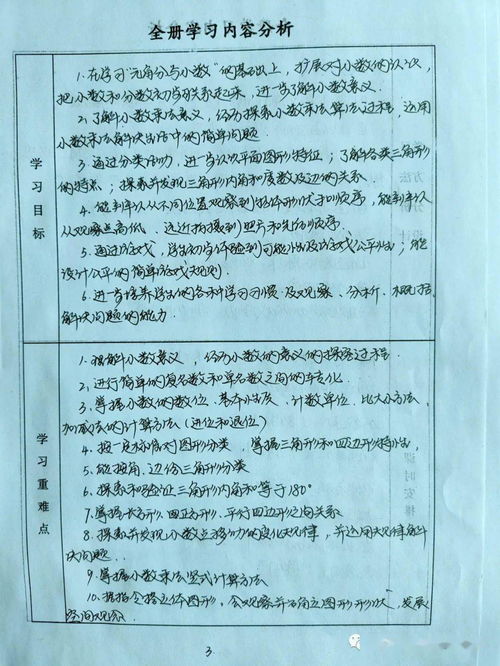 全册学习内容分析
学习目标
1.在学习“元角分与小数”的基础上，扩展对小数的认识，
把小数和分数初步关系起来，进一步了解小数意义.
2.了解小数乘法意义，经历探索小数乘法算法过程，运用
小数乘法解决生活中的简单问题
3.通过分类活动，进一步认识平面图形特征；了解各类三角形
的特点；探索并发现三角形内角和度数及边的关系.
4.能判认从不同位置观察到物体形状和顺序，能判认
从观察点高低、远近拍摄到照片和先后顺序.
5.通过游戏，学生初步体验到可能性及游戏公平性；能
设计公平的简单游戏规则.
6.进一步培养学生的各种学习习惯及观察、分析、概括
解决问题的能力.
学习重难点
1.理解小数意义，经历小数的意义的探索过程.
2.进行简单的复名数和单名数之间的转化.
3.掌握小数的数位、基本性质、计数单位、比大小方法、
加减法的计算方法（进位和退位）
4.按一定标准对图形分类，掌握三角形和四边形特性.
5.能按角、边给三角形分类
6.探索和验证三角形内角和等于180°
7.掌握长方形、正方形、平行四边形之间关系
8.探索并发现小数点移动的变化规律，并运用规律解
决问题.
9.掌握小数乘法竖式计算方法
10.根据指令搭立体图形，会观察并画立图形形状，发展
空间观念.
3